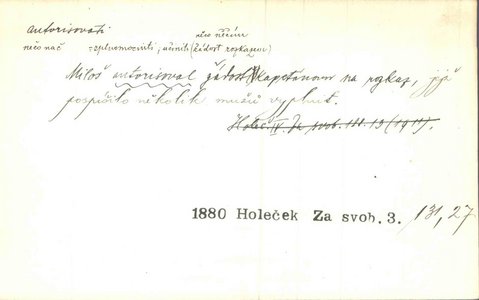 autorisovati
něco něčím
něco nač = zplnomocniti, učiniti (žádost rozkazem)
Miloš autorisoval žádost kapetánovu na rozkaz, jejž
pospíšilo několik mužů vyplnit.
Holeč. IV Za svob. 13 (1911).
1880 Holeček Za svob. 3. 131,27